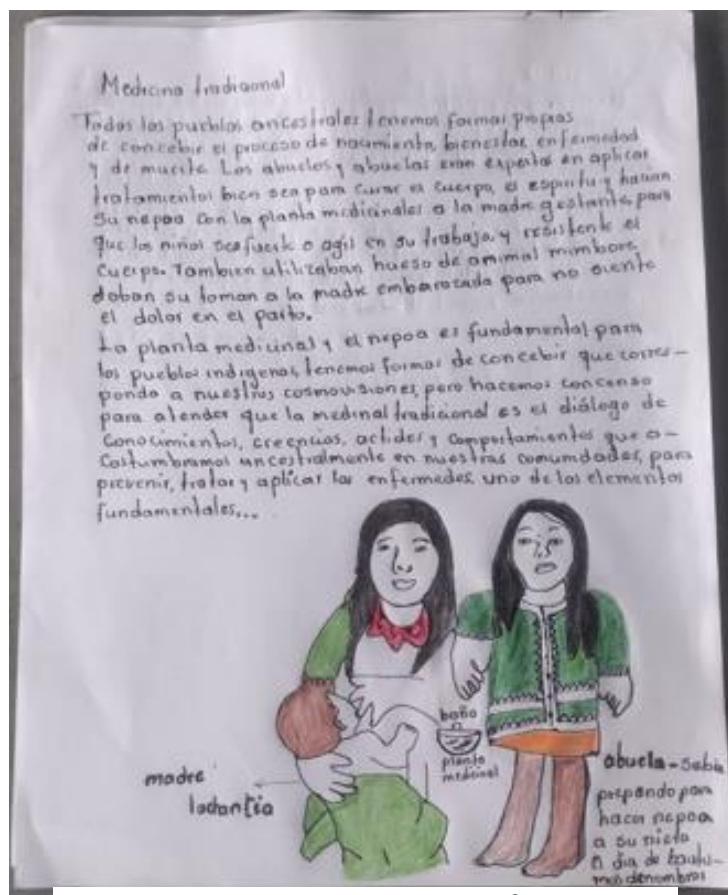 Medicina tradicional
Todos los pueblos ancestrales tenemos formas propias
de concebir el proceso de nacimiento, bienestar, enfermedad
y de muerte. Los abuelos y abuelas eran expertos en aplicar
tratamientos bien sea para curar el cuerpo, el espiritu y hacían
su nepoa con la planta medicinales a la madre gestante, para
que los niños sea fuerte o agil en su trabajo, y resistente el
cuerpo. Tambien utilizaban hueso de animal mimbore,
daban su toman a la madre embarazada para no siente
el dolor en el parto.
La planta medicinal y el nepoa es fundamental para
los pueblos indigenas, tenemos formas de concebir que corres-
ponda a nuestras cosmovisiones, pero hacemos concenso
para atender que la medinal tradicional es el diálogo de
conocimientos, creencias, actides y comportamientos que a-
costumbramos ancestralmente en nuestras comundades, para
prevenir, tratar y aplicar las enfermedes, uno de los elementos
fundamentales...
baño
planta
medicinal
madre
lactantia
abuela - sabia
prepando para
hacer nepoa
a su nieta
dia de